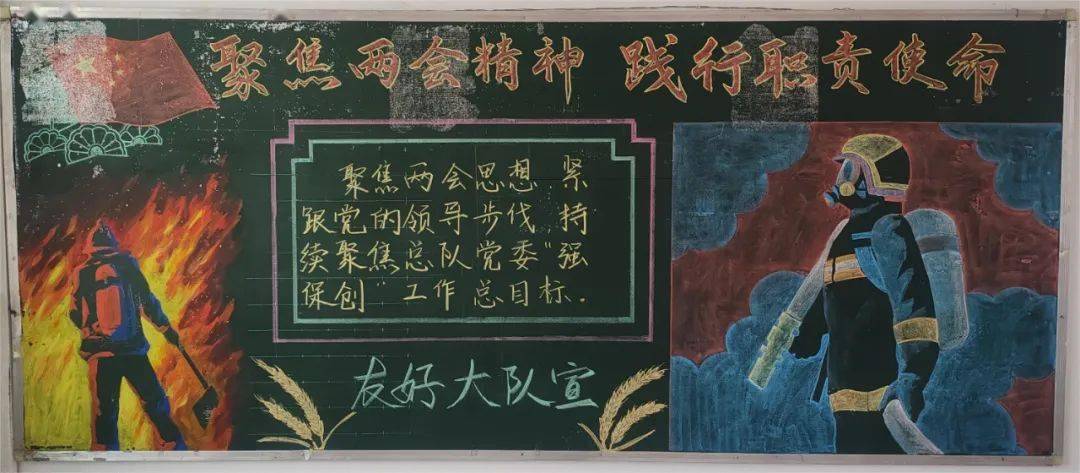 聚焦两会精神 践行职责使命
聚焦两会思想、紧
跟党的领导步伐、持
续聚焦总队党委“强
保创”工作总目标.
友好大队宣